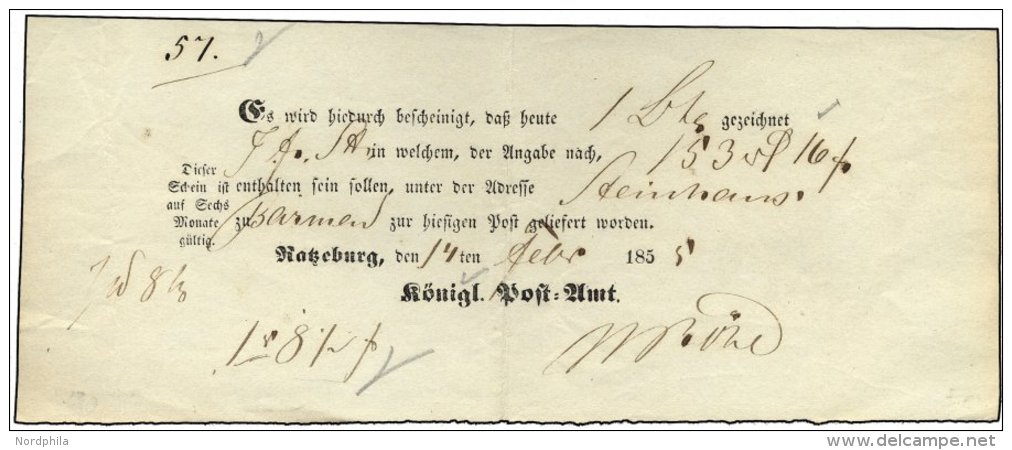 57.
Es wird hiedurch bescheinigt, daß heute 1 gezeichnet
in welchem, der Angabe nach, 153 16
Dieser
Schein ist
auf Sechs
Monate
gültig.
enthalten sein sollen, unter der Adresse Steinhaus.
zu Barmen zur hiesigen Post geliefert worden.
Ratzeburg, den 14ten Febr 1855
Königl. Post-Amt.
Nordphila
www.delcampe.net